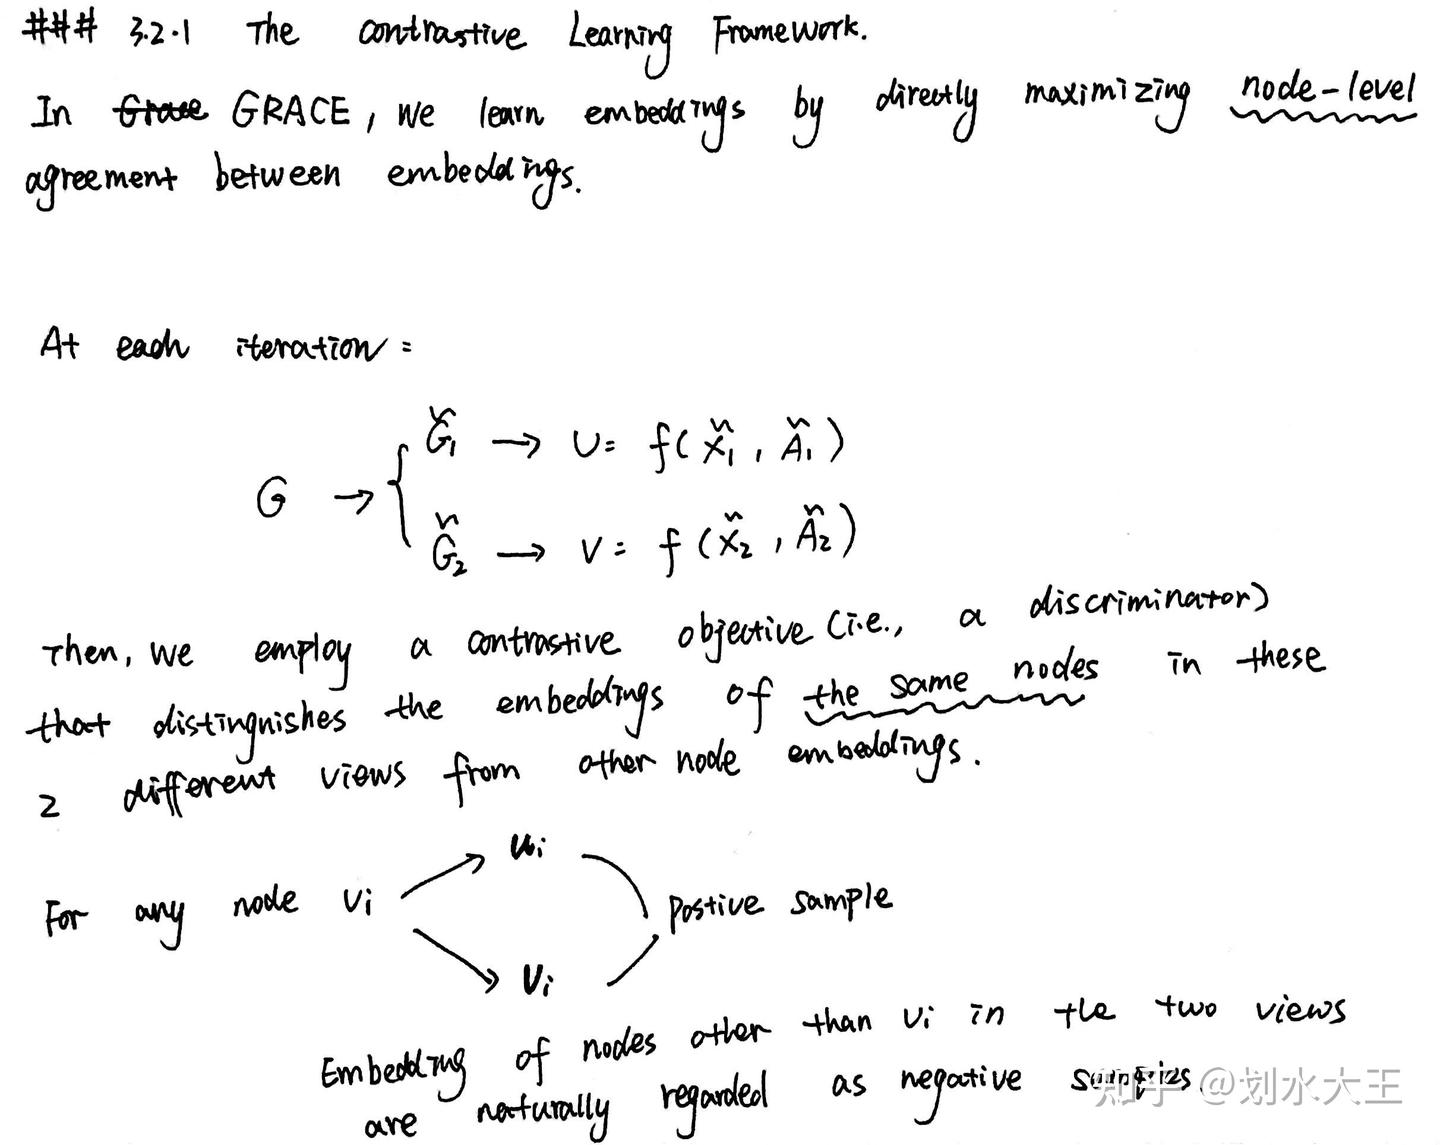 ### 3.2.1 The contrastive Learning Framework.
In Grace GRACE, we learn embeddings by directly maximizing node-level
agreement between embeddings.
At each iteration:
G̃₁ → U = f(X̃₁, Ã₁)
G →
G̃₂ → V = f(X̃₂, Ã₂)
Then, we employ a contrastive objective (i.e., a discriminator)
that distinguishes the embeddings of the same nodes in these
2 different views from other node embeddings.
uᵢ
For any node vᵢ
Postive sample
vᵢ
Embedding of nodes other than vᵢ in the two views
are naturally regarded as negative samples.
知乎 @划水大王